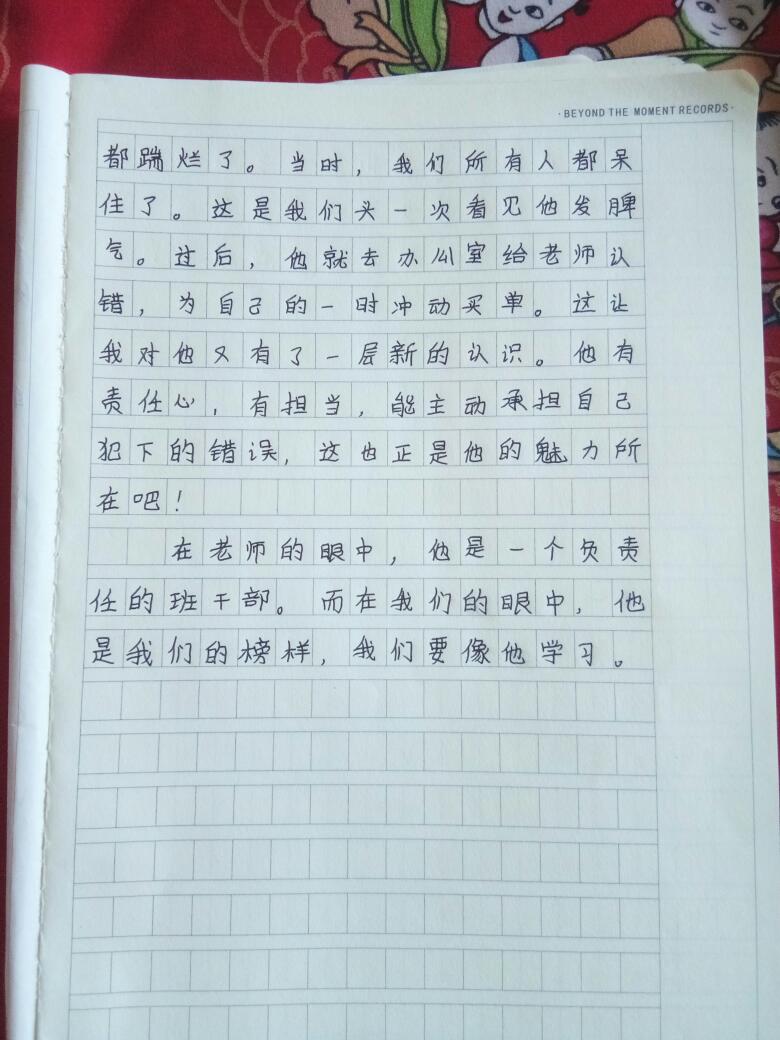 ·BEYOND THE MOMENT RECORDS·
都踹烂了。当时，我们所有人都呆
住了。这是我们头一次看见他发脾
气。过后，他就去办公室给老师认
错，为自己的一时冲动买单。这让
我对他又有了一层新的认识。他有
责任心，有担当，能主动承担自己
犯下的错误，这也正是他的魅力所
在吧！
在老师的眼中，他是一个负责
任的班干部。而在我们的眼中，他
是我们的榜样，我们要像他学习。